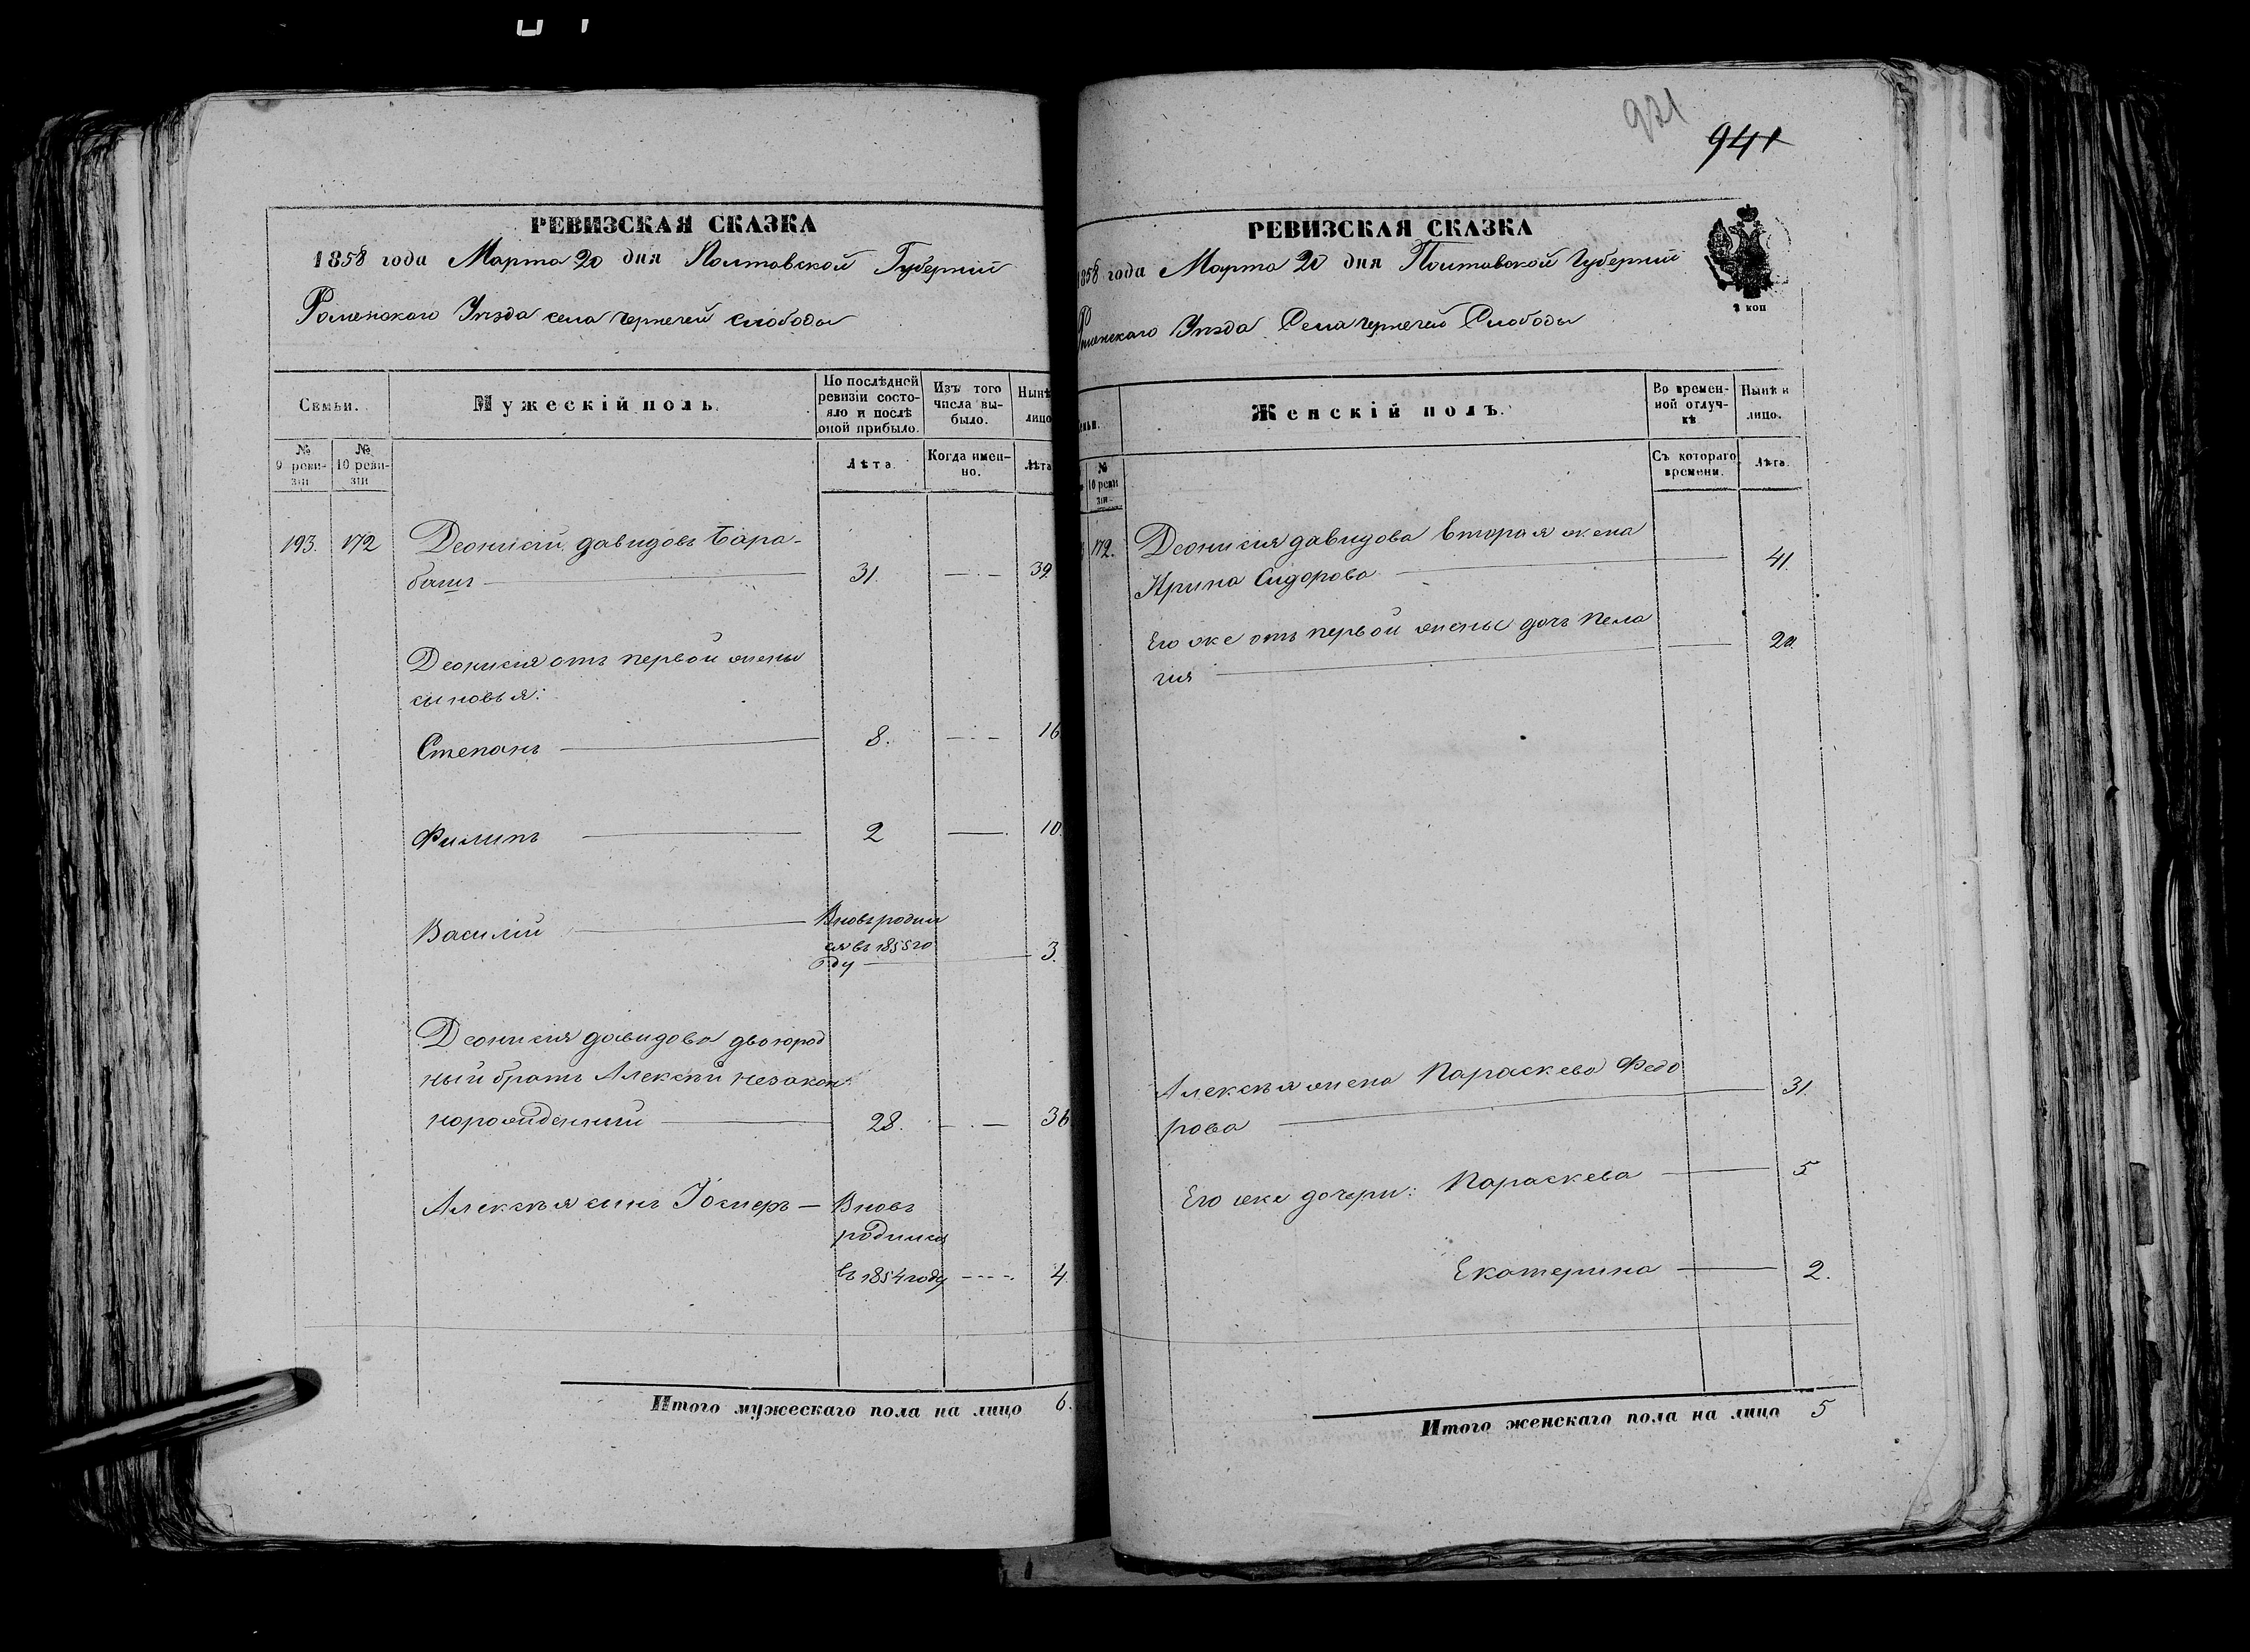 РЕВИЗСКАЯ СКАЗКА
1858 года Марта 20 дня Полтавской Губерніи
Роменскаго Уѣзда села Чернечей Слободы
Семьи.
Мужескій полъ.
По послѣдней ревизіи состояло и послѣ оной прибыло.
Изъ того числа выбыло.
Нынѣ
лицо
№ 9 ревизіи
№ 10 ревизіи
Лѣта.
Когда именно.
Лѣта
193. 172 Деонисій Давидовъ Бара-
башъ 31. 39.
Деонисія отъ первой жены
сыновья:
Степанъ 8. 16
Филипъ 2 10.
Василій Вновь родил
ся въ 1855 го
ду 3.
Деонисія Давидова двоюрод
ный братъ Алексѣй незакон
норожденный 28. 36
Алексѣя сынъ Іосифъ Вновь
родился
въ 1854 году 4.
Итого мужескаго пола на лицо 6.
921
941
РЕВИЗСКАЯ СКАЗКА
1858 года Марта 20 дня Полтавской Губерніи
Роменскаго Уѣзда Села Чернечей Слободы
2 коп
Женскій полъ.
Во временной отлучкѣ
Нынѣ н
лицо.
№ 10 ревизіи
Съ котораго времени.
Лѣта.
172. Деонисія Давидова вторая жена
Ирина Сидорова 41.
Его же отъ первой жены дочь Пела
гія 20.
Алексѣя жена Параскева Федо
рова 31.
Его же дочери: Параскева 5
Екатерина 2.
Итого женскаго пола на лицо 5